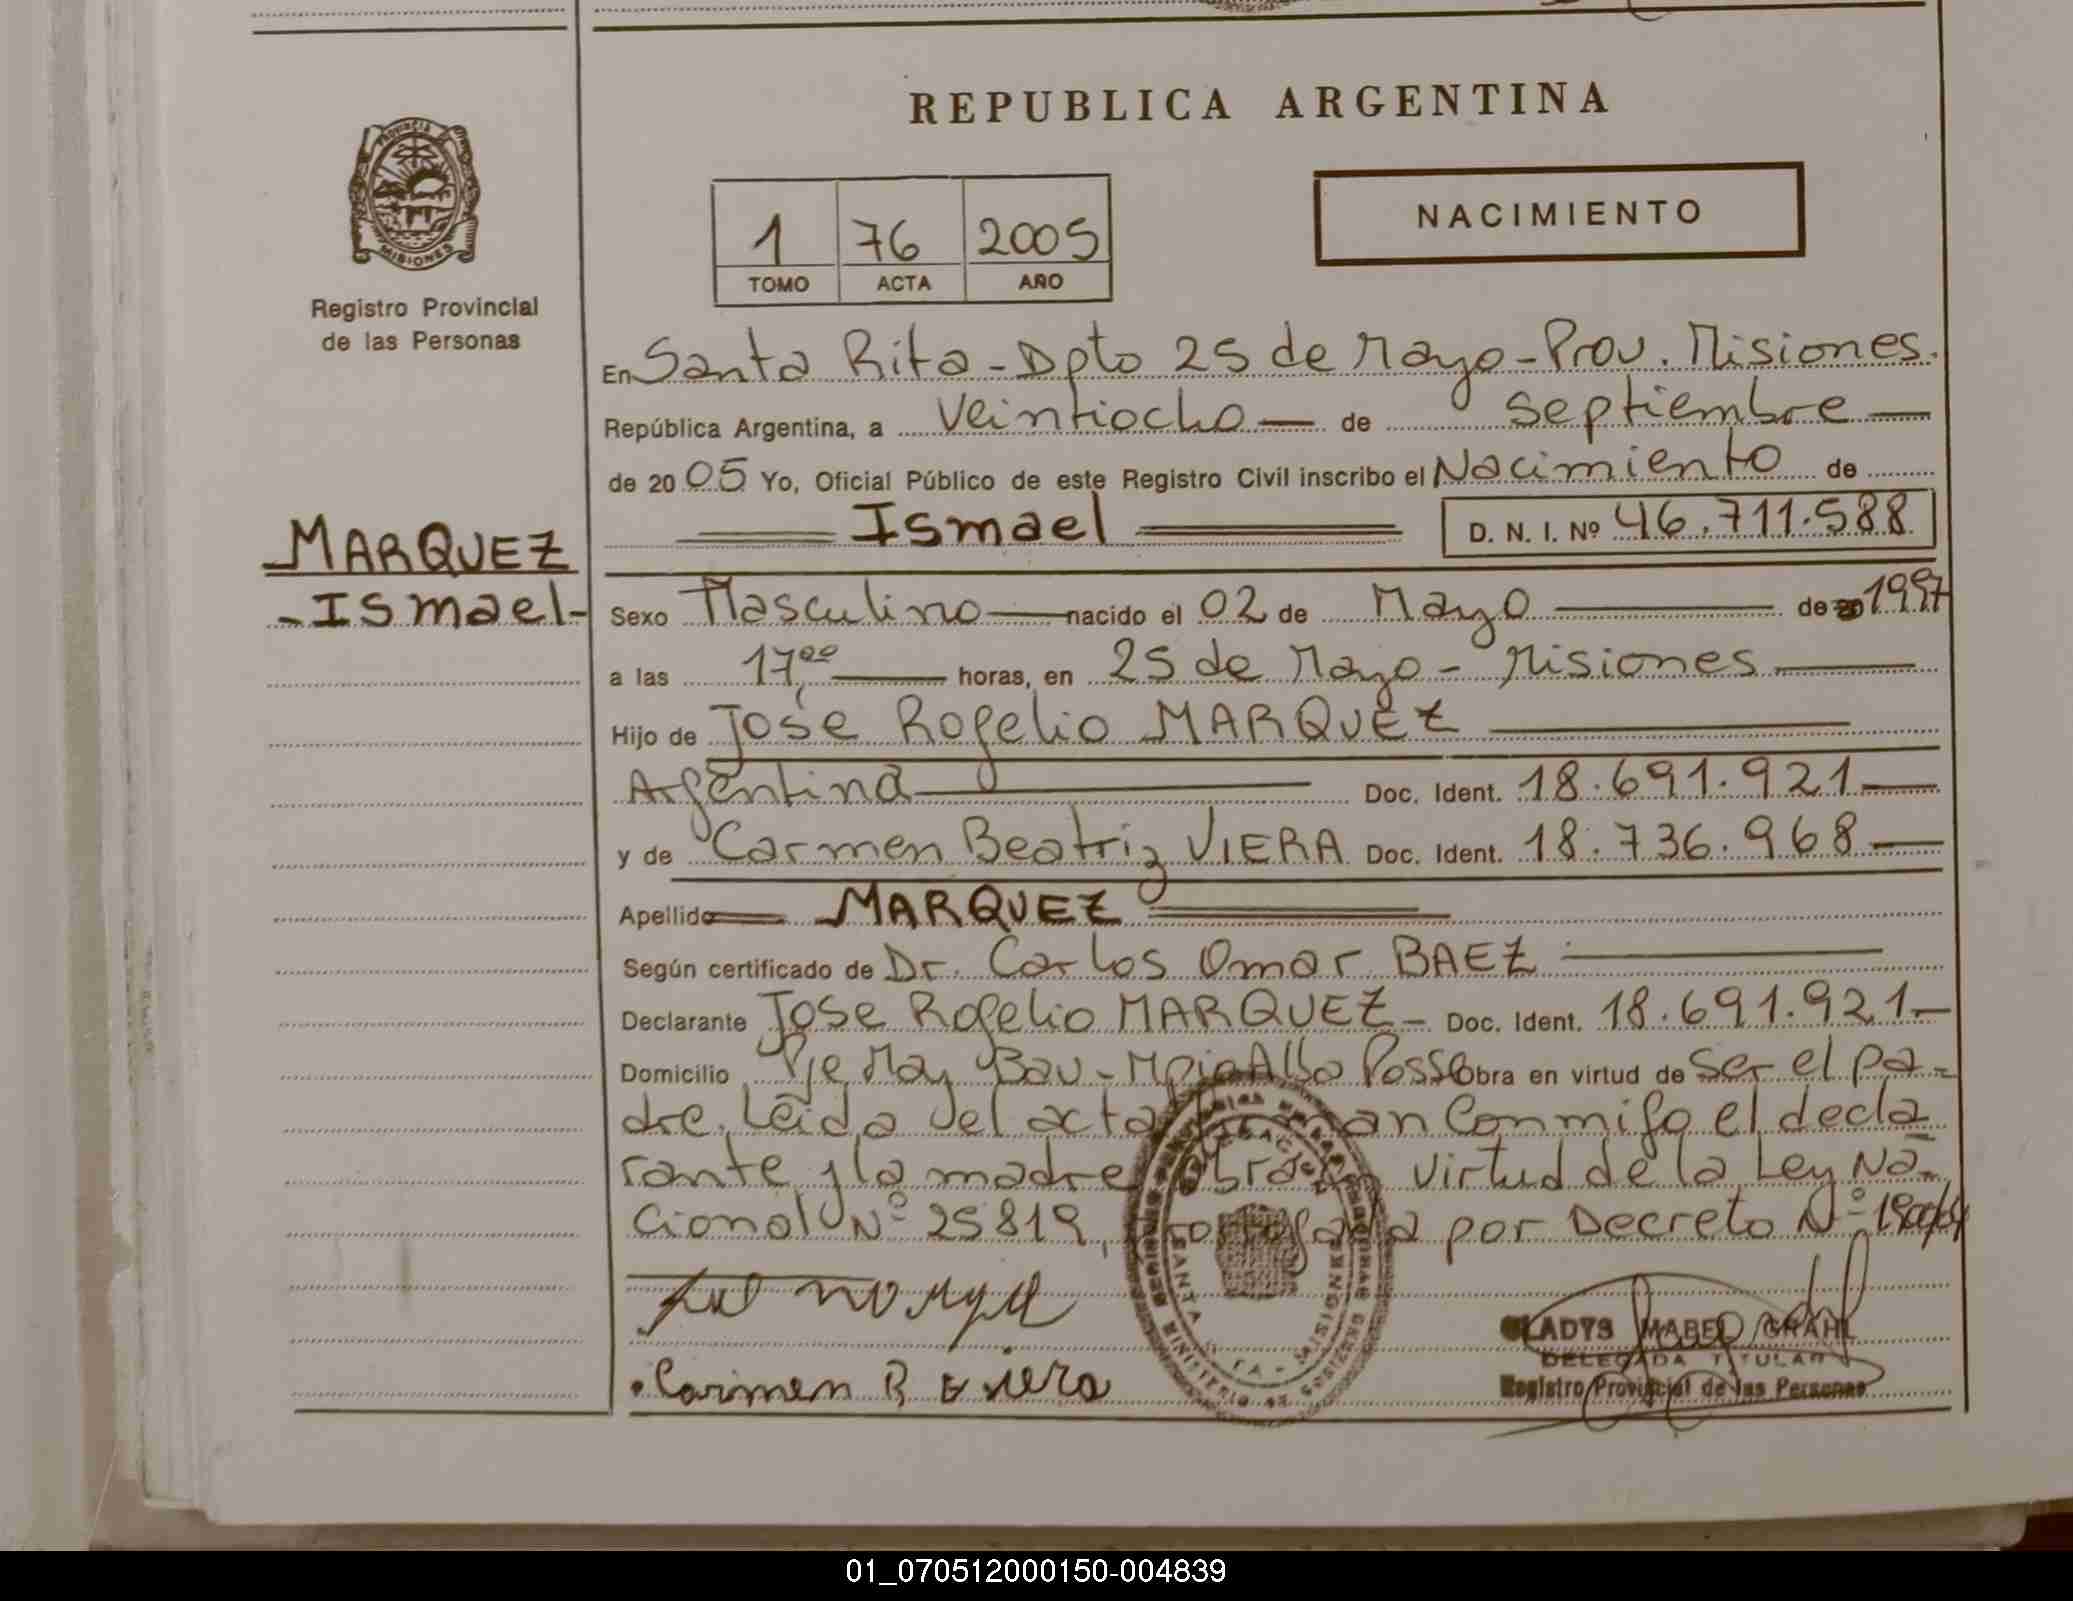 REPUBLICA ARGENTINA
PROVINCIA
MISIONES
Registro Provincial
de las Personas
1 76 2005
TOMO ACTA AÑO
NACIMIENTO
En Santa Rita - Dpto 25 de Mayo - Prov. Misiones.
República Argentina, a Veintiocho de Septiembre
de 20 05 Yo, Oficial Público de este Registro Civil inscribo el Nacimiento de
Ismael D. N. I. Nº 46.711.588
MARQUEZ
- Ismael -
Sexo Masculino nacido el 02 de Mayo de 20 1997
a las 17,00 horas, en 25 de Mayo - Misiones
Hijo de José Rogelio MARQUEZ
Argentina Doc. Ident. 18.691.921
y de Carmen Beatriz VIERA Doc. Ident. 18.736.968
Apellido MARQUEZ
Según certificado de Dr. Carlos Omar BAEZ
Declarante Jose Rogelio MARQUEZ - Doc. Ident. 18.691.921
Domicilio Pje May Bav - Mpio Alba Posse Obra en virtud de ser el pa-
dre. Leida el acta firman conmigo el decla
rante y la madre Obra en virtud de la Ley Na-
cional Nº 25819, por Decreto Nº
Carmen B Viera
SANTA RITA - MISIONES
GLADYS MABEL GRAHL
DELEGADA TITULAR
Registro Provincial de las Personas
01_070512000150-004839